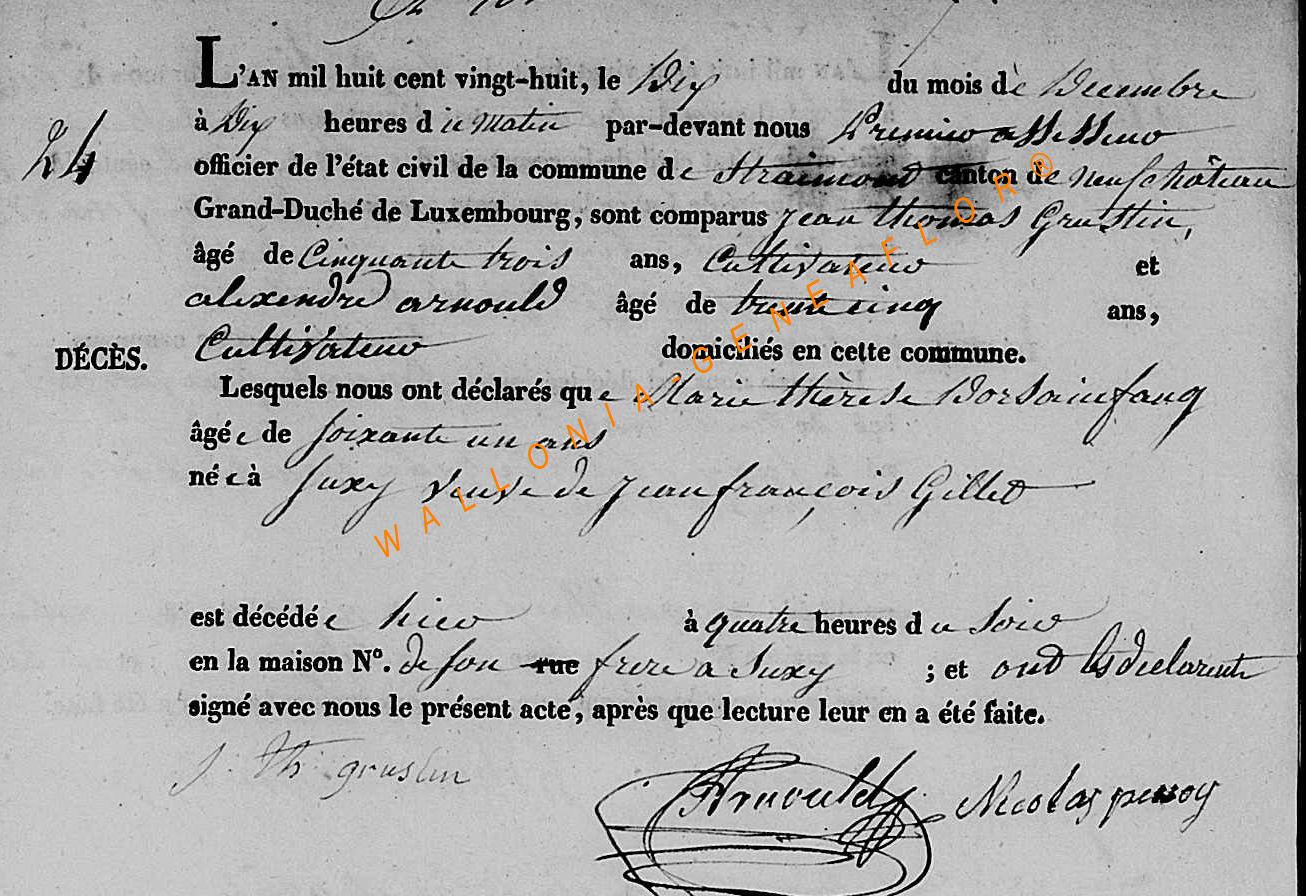 L'AN mil huit cent vingt-huit, le Dix du mois de Decembre
à Dix heures du Matin par-devant nous Premier assesseur
24
officier de l'état civil de la commune de Straimont canton de neufchâteau
Grand-Duché de Luxembourg, sont comparus jean thomas Grustin,
âgé de Cinquante trois ans, Cultivateur et
alexendre arnould âgé de trente cinq ans,
DÉCÈS.
Cultivateur domiciliés en cette commune.
Lesquels nous ont déclarés que Marie thèrese Dorsainfang
âgée de soixante un ans
née à Suxy veuve de jean françois Gillet
est décédée hier à quatre heures du soir
en la maison N°. de son rue frere a Suxy ; et ont les declarents
signé avec nous le présent acte, après que lecture leur en a été faite.
j. th. grustin
Arnould
Nicolas
WALLONIA-GENEAFLOR®